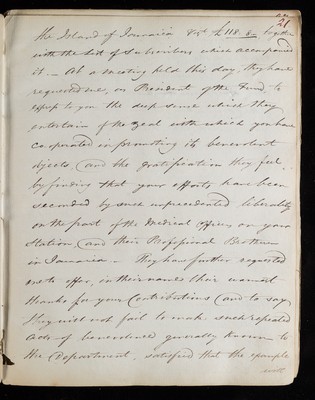 21
the Island of Jamaica £118. 8 together
with the List of Subscribers which accompanied
it. – At a meeting held this day, they have
requested me, as President of the Fund, to
express to you the deep sense which they
entertain of the zeal with which you have
co-operated in promoting its benevolent
objects, and the gratification they feel,
by finding that your efforts have been
seconded by such unprecedented liberality
on the part of the Medical Officers on your
Station, and their Professional Brethren
in Jamaica – They have further requested
me to offer, in their names their warmest
thanks for your Contributions and to say
they will not fail to make such repeated
acts of benevolence generally known to
the Department, satisfied that the example
will